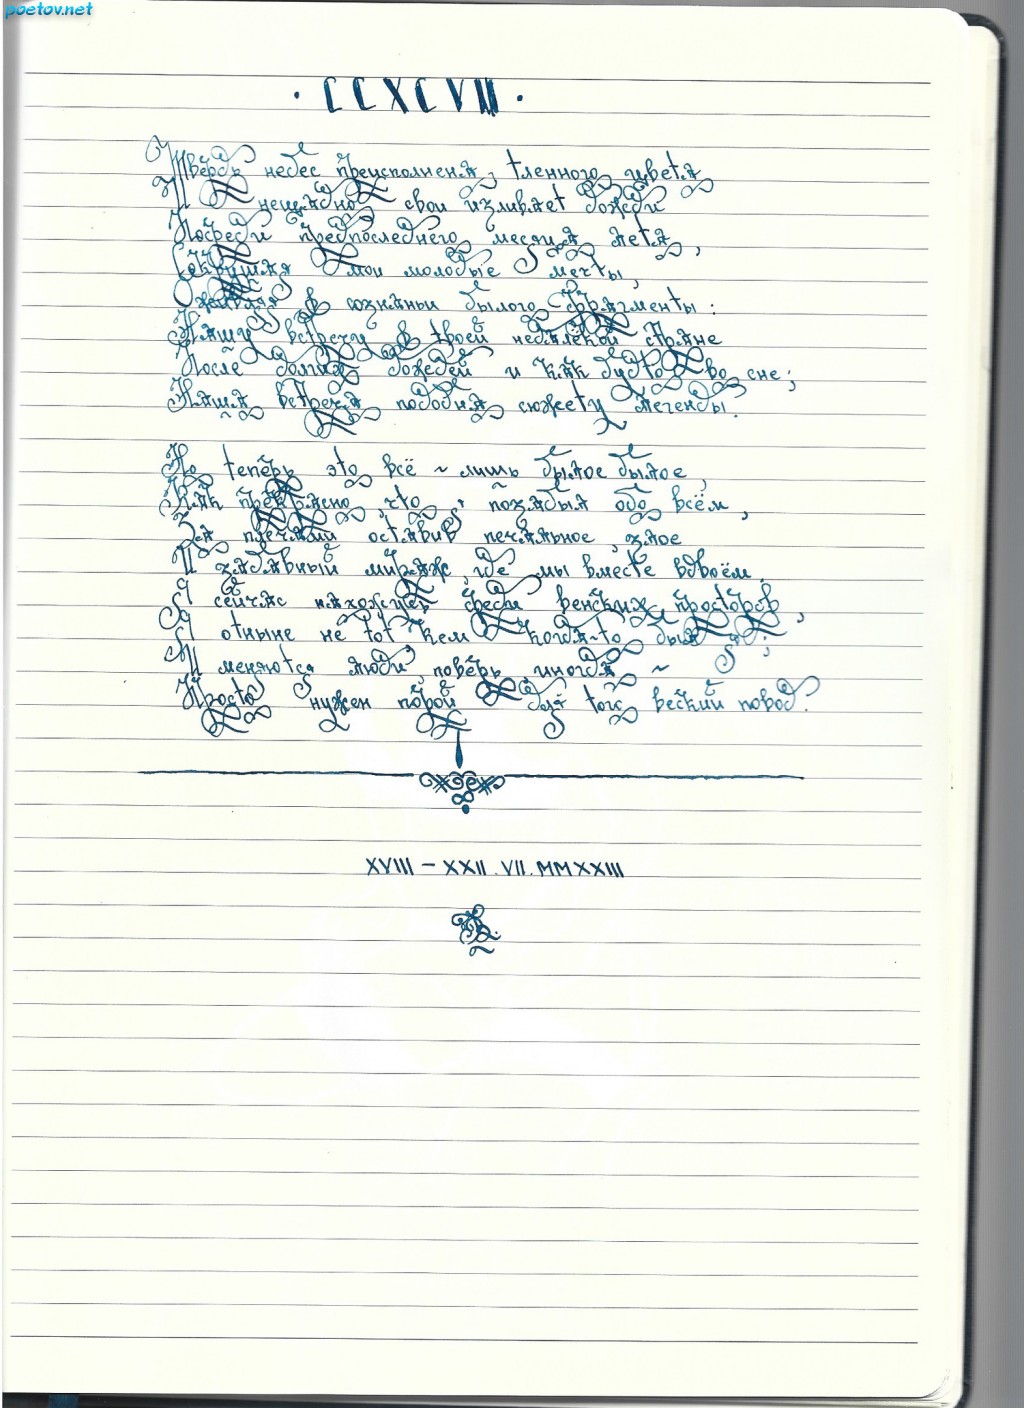 poetov.net
· CCXCVIII ·
Твердь небес преисполнена тленного цвета
И нещадно свои изливает дожди
Посреди предпоследнего месяца лета,
Сокрушая мои молодые мечты,
Оживляя в сознаньи былого фрагменты:
Нашу встречу в твоей недалёкой стране
После долгих дождей и как будто во сне;
Наша встреча подобна сюжету легенды.
Но теперь это всё ~ лишь былое былое,
Как прекрасно, что я позабыл обо всём,
За плечами оставив печальное, злое
И забавный мираж, где мы вместе вдвоём.
Я сейчас нахожусь средь венских просторов,
Я отныне не тот кем когда-то был я;
И меняются люди, поверь, иногда ~
Просто нужен порой для того веский повод.
XVIII – XXII . VII . MMXXIII